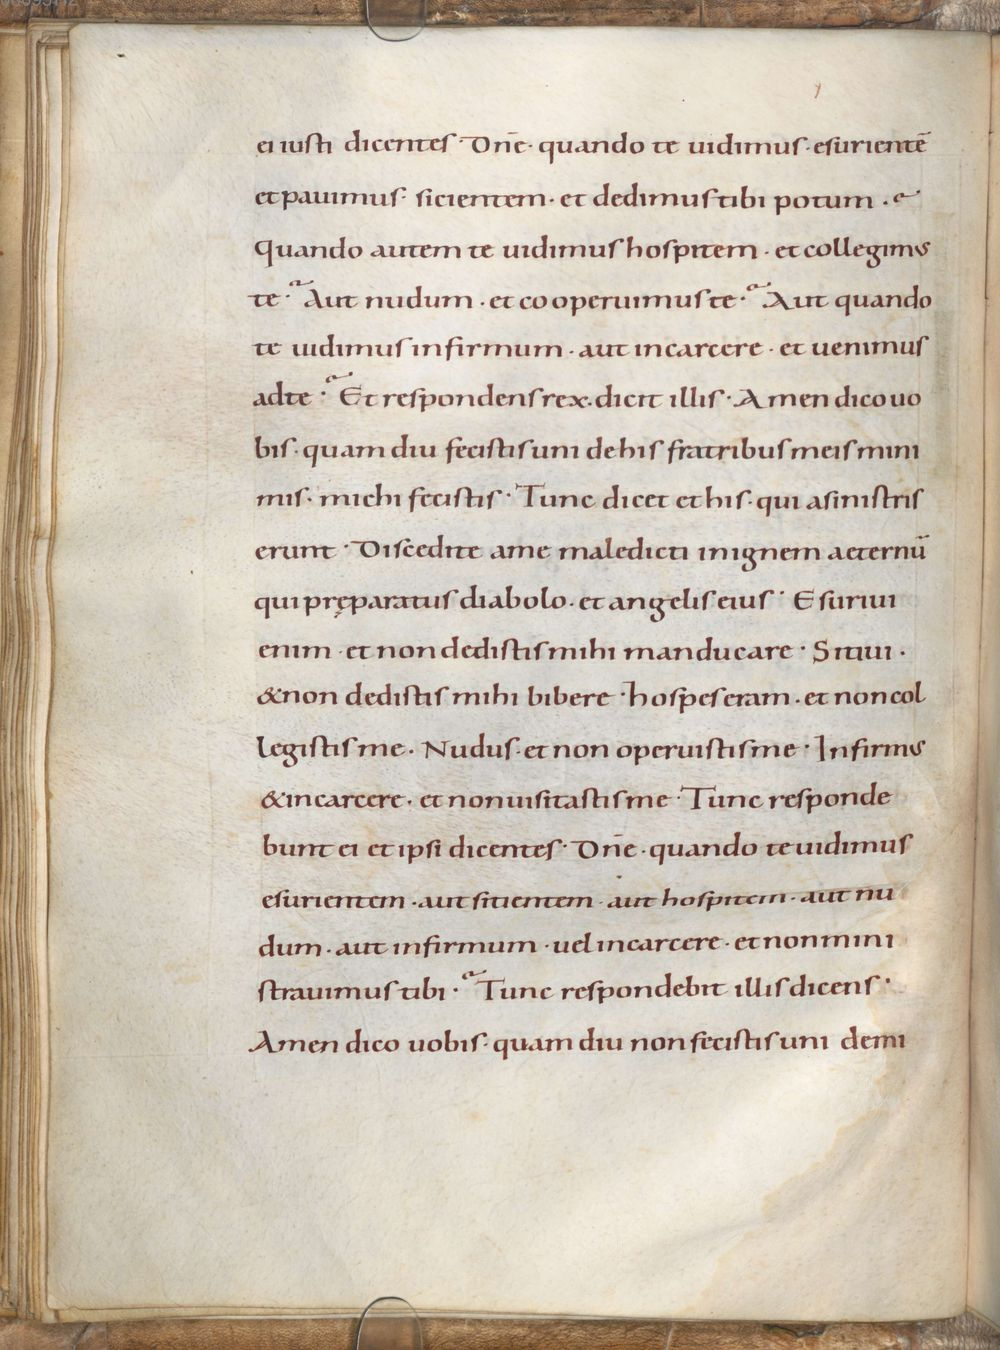 ei iusti dicentes· Dn̄e· quando te uidimus· esurientē
et pauimus· sicientem· et dedimus tibi potum·
Quando autem te uidimus hospitem· et collegimus
te· Aut nudum· et cooperuimus te· Aut quando
te uidimus infirmum· aut in carcere· et uenimus
ad te· Et respondens rex· dicit illis· Amen dico uo
bis· quam diu fecistis uni de his fratribus meis mini
mis· michi fecistis· Tunc dicet et his· qui a sinistris
erunt· Discedite a me maledicti in ignem aeternū
qui pręparatus diabolo· et angelis eius· Esuriui
enim· et non dedistis mihi manducare· Sitiui·
& non dedistis mihi bibere· hospes eram· et non col
legistis me· Nudus· et non operuistis me· Infirmus
& in carcere· et non uisitastis me· Tunc responde
bunt ei et ipsi dicentes· Dn̄e· quando te uidimus
esurientem· aut sitientem· aut hospitem· aut nu
dum· aut infirmum· uel in carcere· et non mini
strauimus tibi· Tunc respondebit illis dicens·
Amen dico uobis· quam diu non fecistis uni de mi